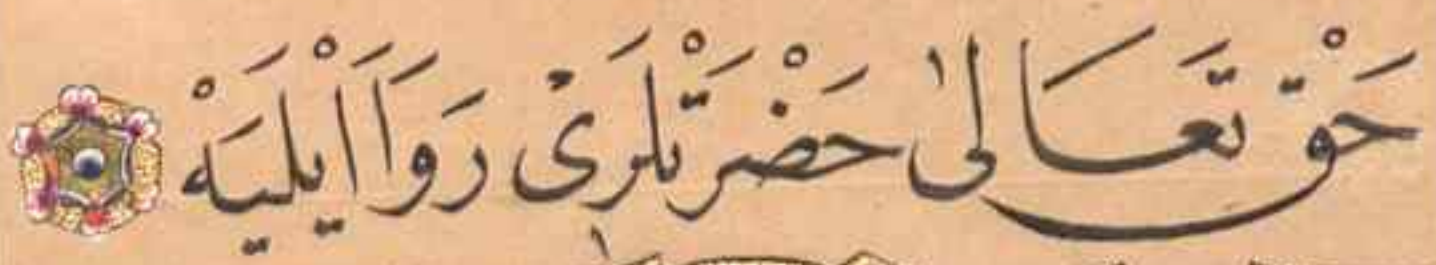 حَقْ تَعَالٰى حَضْرَتْلَرِى رَوَا اَيْلَيَهْ